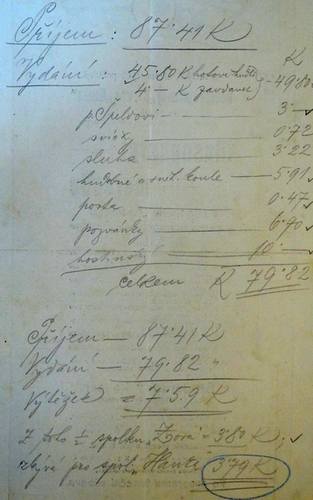 Příjem: 87·41 K
K
Vydání: 45·80 K hotově
4·— K závdavek } — 49·80
p. Špeldovi — 3·—
svíčky — 0·72
sluha — 3·22
hudebné a svět. koule — 5·91
pošta — 0·47
pozvánky — 6·70
hostinský — 10·—
celkem K 79·82
Příjem — 87·41 K
Vydání — 79·82 "
Výtěžek = 7·59 K
Z toho ½ spolku „Zora" = 3·80 K
zbývá pro spol. „Hanka" 3·79 K